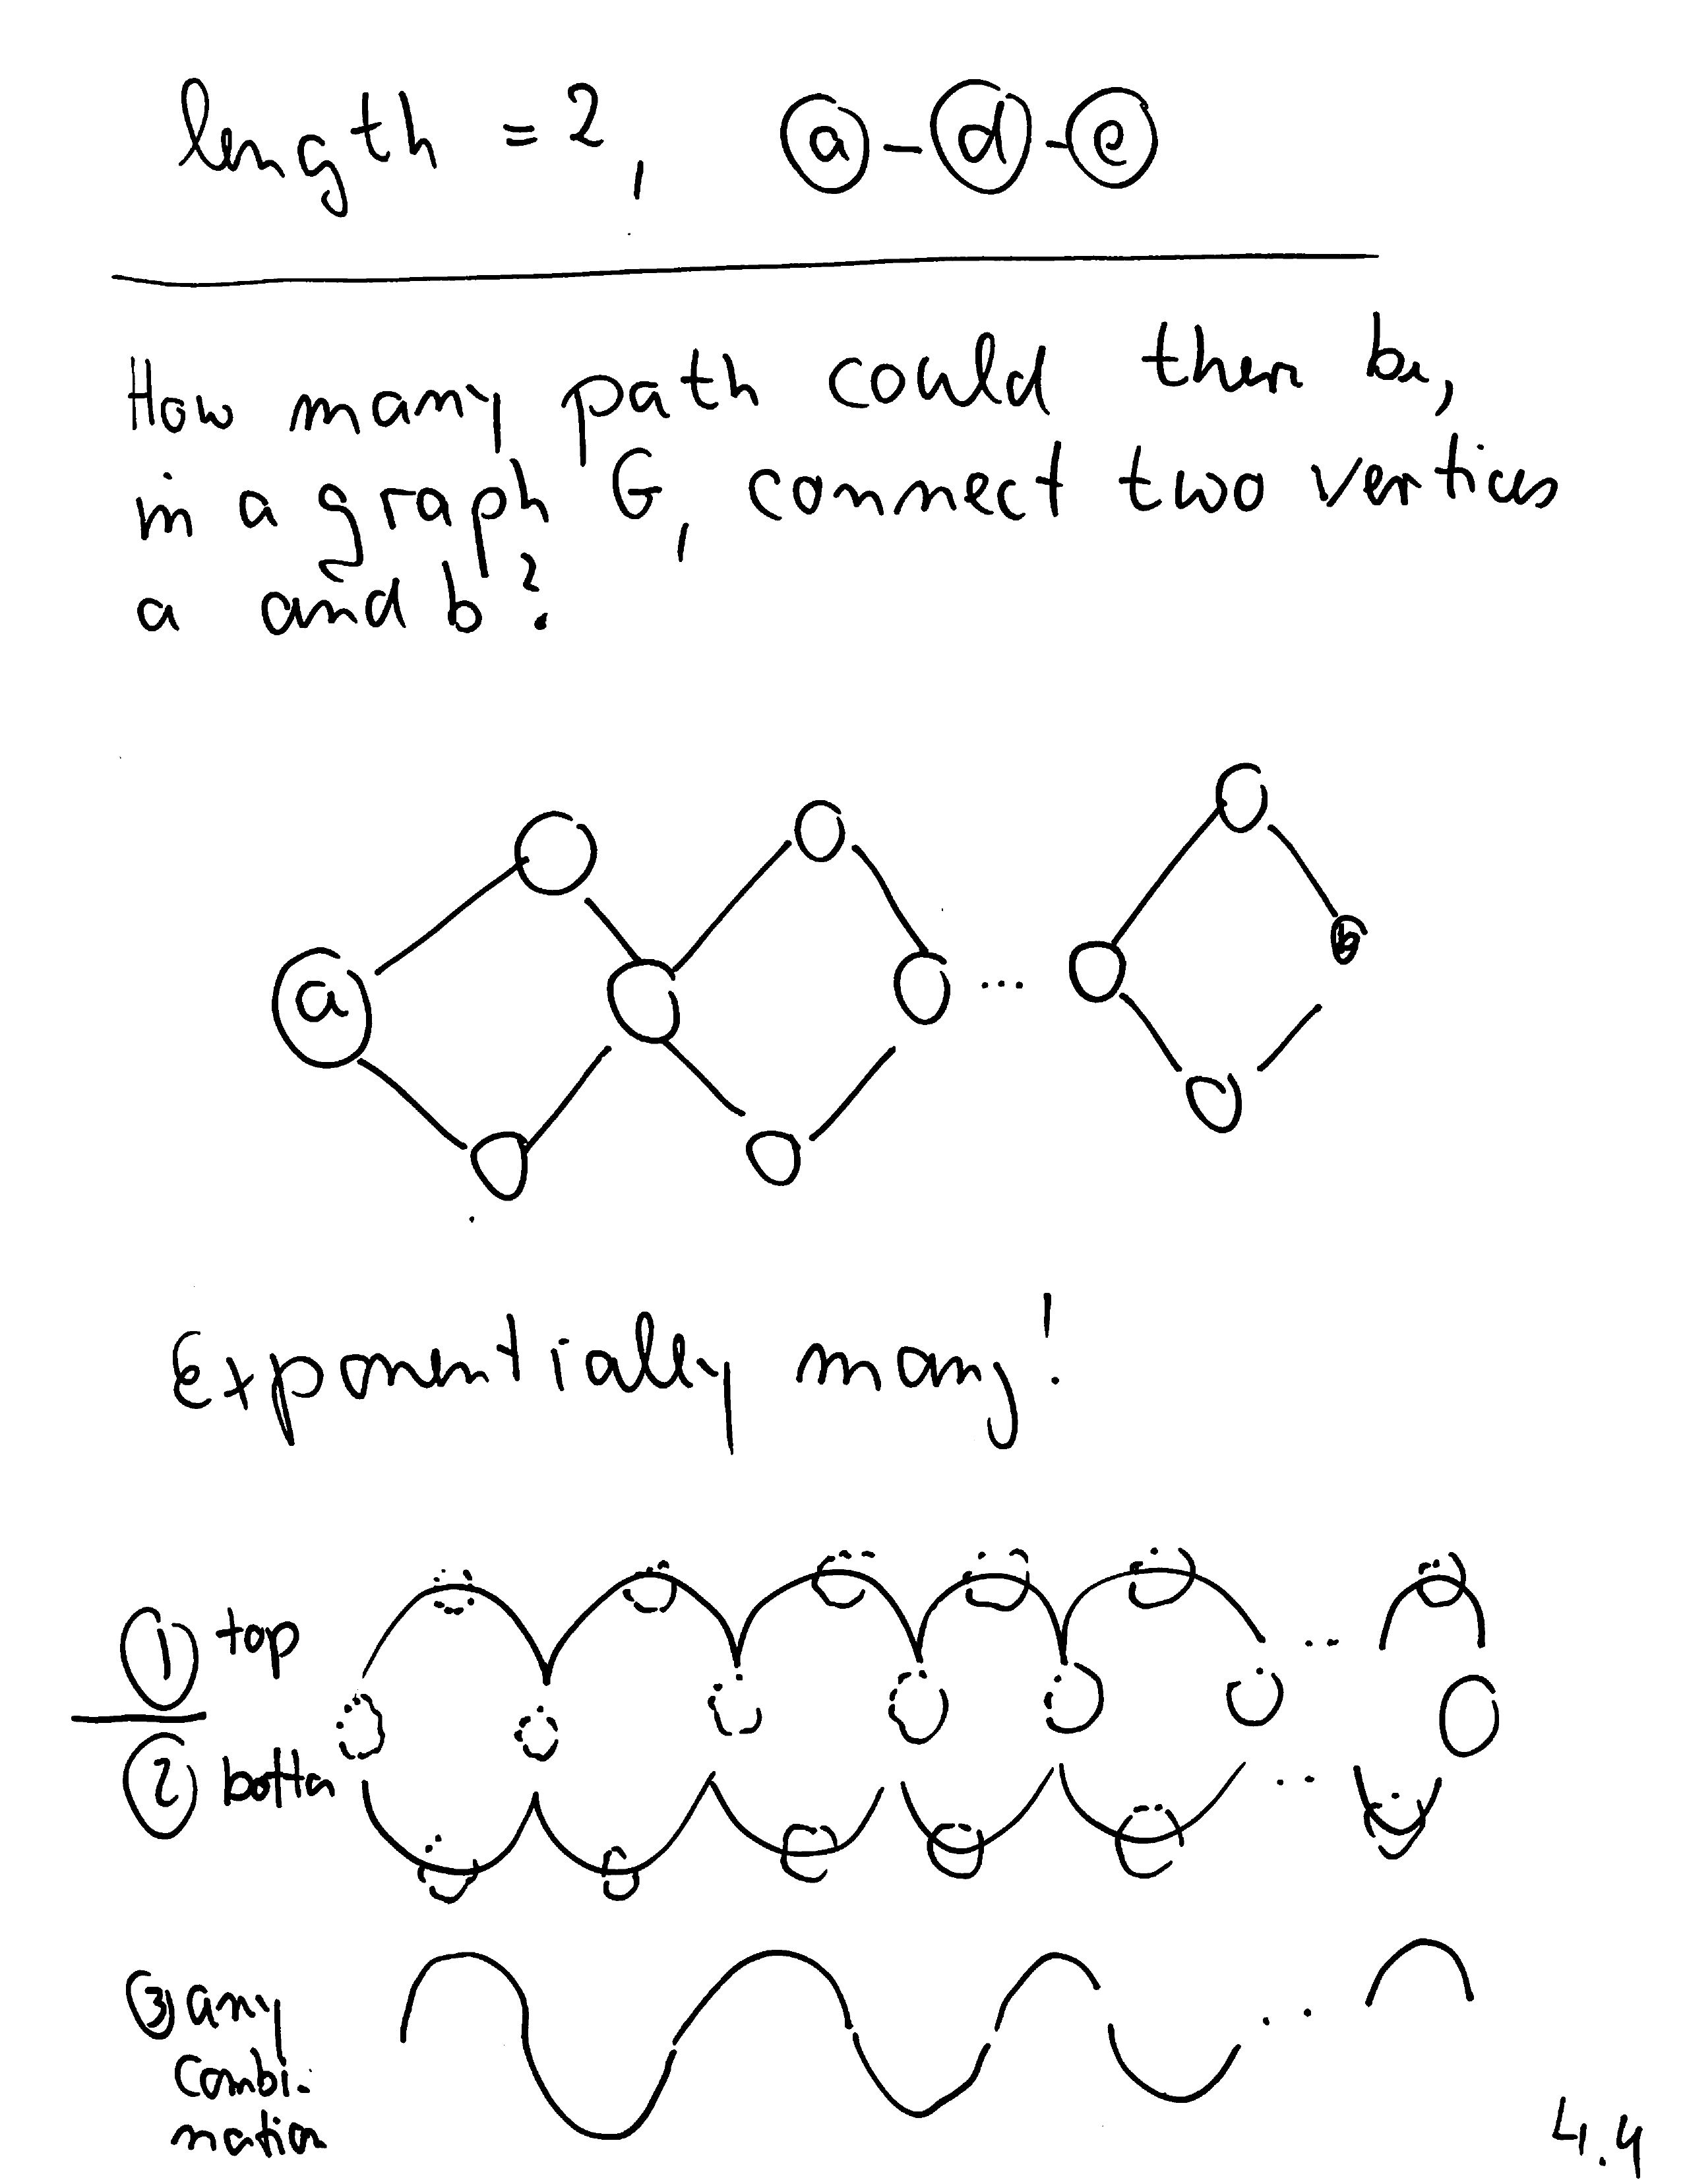 length = 2, a - d - e
How many path could there be,
in a graph G, connect two vertices
a and b?
a ... b
Exponentially many!
① top ..
② bottom ..
③ any ..
combi-
nation
4.4